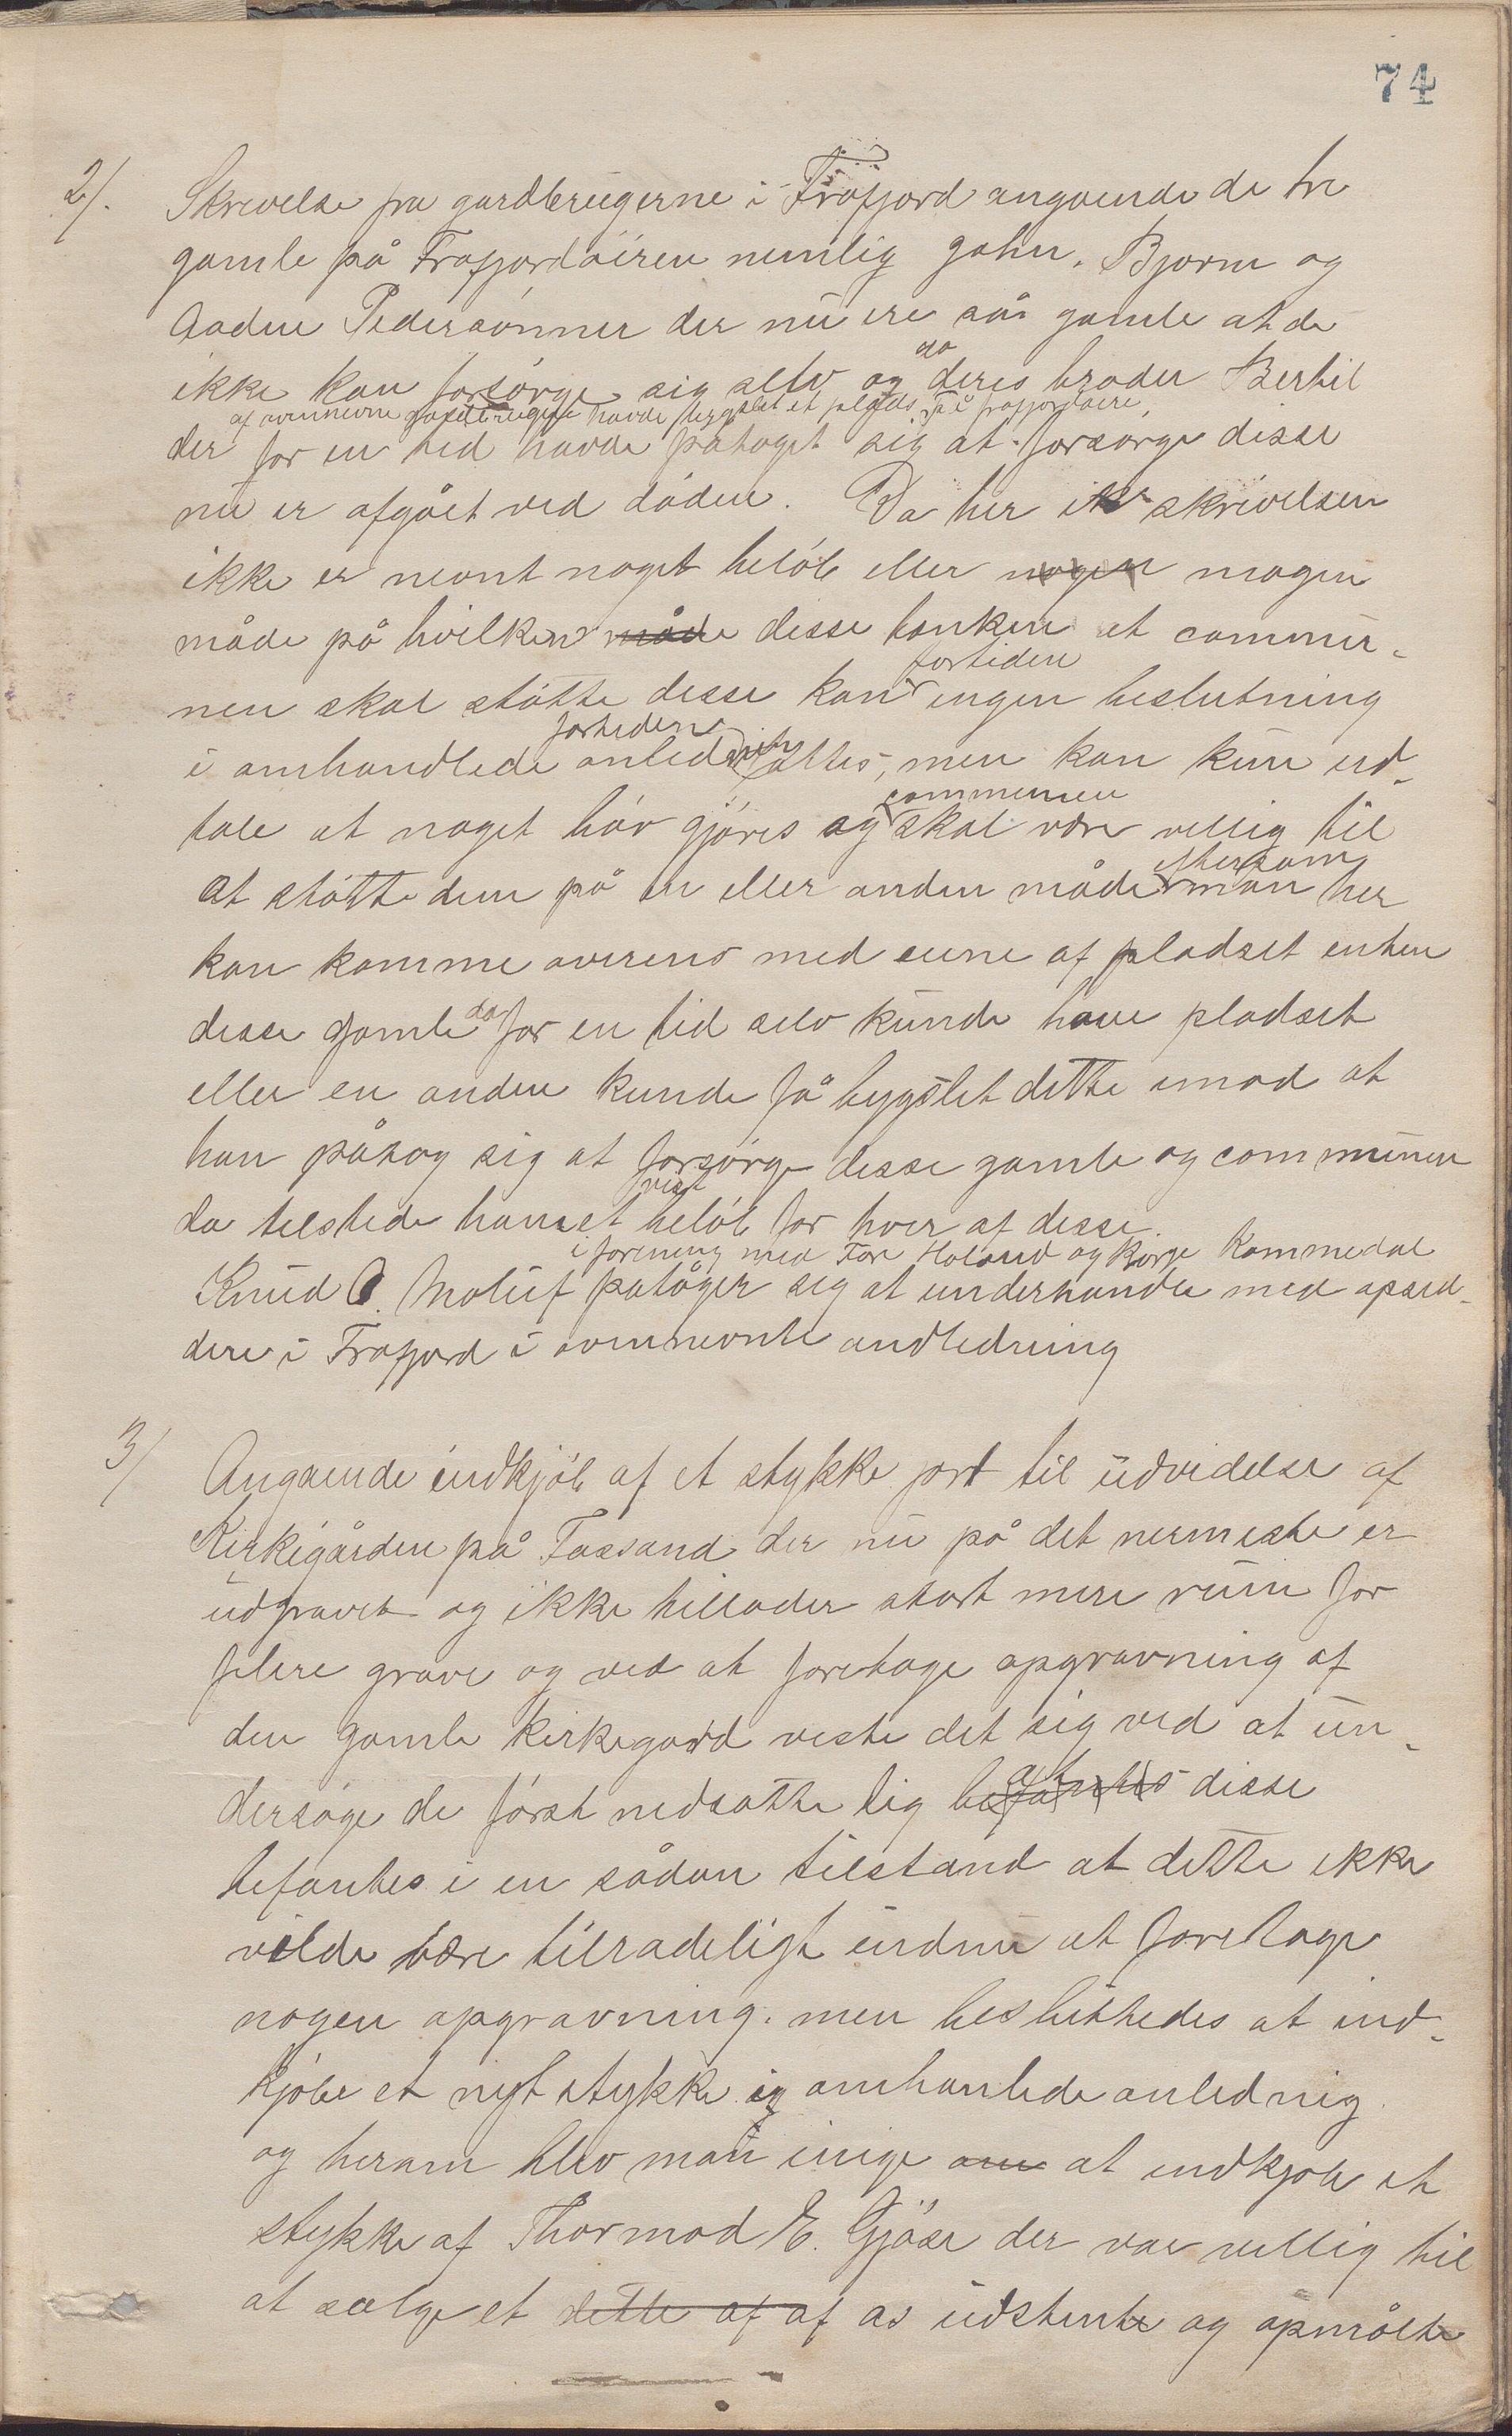 74
2/. Skrivelse fra gardbrugerne i Frafjord angaende de tre
gamle på Frafjordøiren nemlig John, Bjorne og
Aadne Pedersønner der nu ere så gamle at de
da
ikke kan forsørge sig selv og deres broder Berhil
af ovennevne gardbrugere havde bygslet et plads på frafjordøire,
der for en tid havde påtaget sig at forsorge disse
nu er afgået ved døden. Da her i skrivelsen
ikke er nevnt noget beløb eller nogen nogen
måde på hvilken måde disse tenker at commu-
fortiden
nen skal støtte disse kan ingen beslutning
fortiden
i omhandlede anledn fattes, men kan kun ud-
communen
tale at noget bør gjøres og skal være villig til
eftersom
at støtte dem på en eller anden måde man her
kan komme overens med eierne af pladset enten
da
disse gamle for en tid selv kunde have pladset
eller en anden kunde få bygslet dette imod at
han påtog sig at forsørge disse gamle og communen
vist
da tilstede ham et beløb for hver af disse.
i forening med Tore Holand og Børge Kommedal
Knud O. Molauf patager sig at underhandle med opsid-
dere i Frafjord i ovennevnte andledning
3/ Angaende indkjøb af et stykke jort til udvidelse af
Kirkegården på Fossand der nu på det nermeste er
udgravet og ikke tillader stort mere rum for
flere grave og ved at foretage opgravning af
den gamle kirkegard viste det sig ved at un-
at
dersøge de først nedsatte lig befantes disse
befantes i en sådan tilstand at dette ikke
vilde være tilradeligt endnu at foretage
nogen opgravning. men besluttedes at ind-
kjøbe et nyt stykke i omhanlede anlednig
og herom blev man enige om at indkjøbe et
stykke af Thormod E. Gjøse der var villig til
at sælge et dette af af os udstente og opmålte